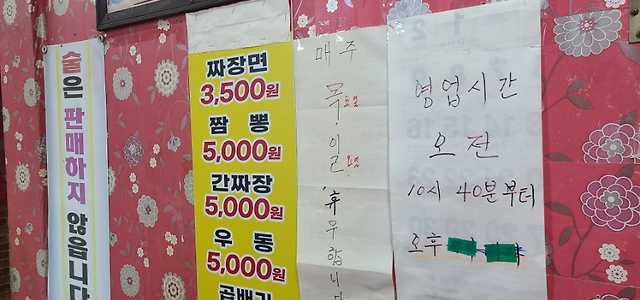 술은 판매하지 않읍니다
짜장면
3,500원
짬뽕
5,000원
간짜장
5,000원
우동
5,000원
곱배기
매주
목요일
일요일
휴무합니다
영업시간
오전
10시 40분부터
오후